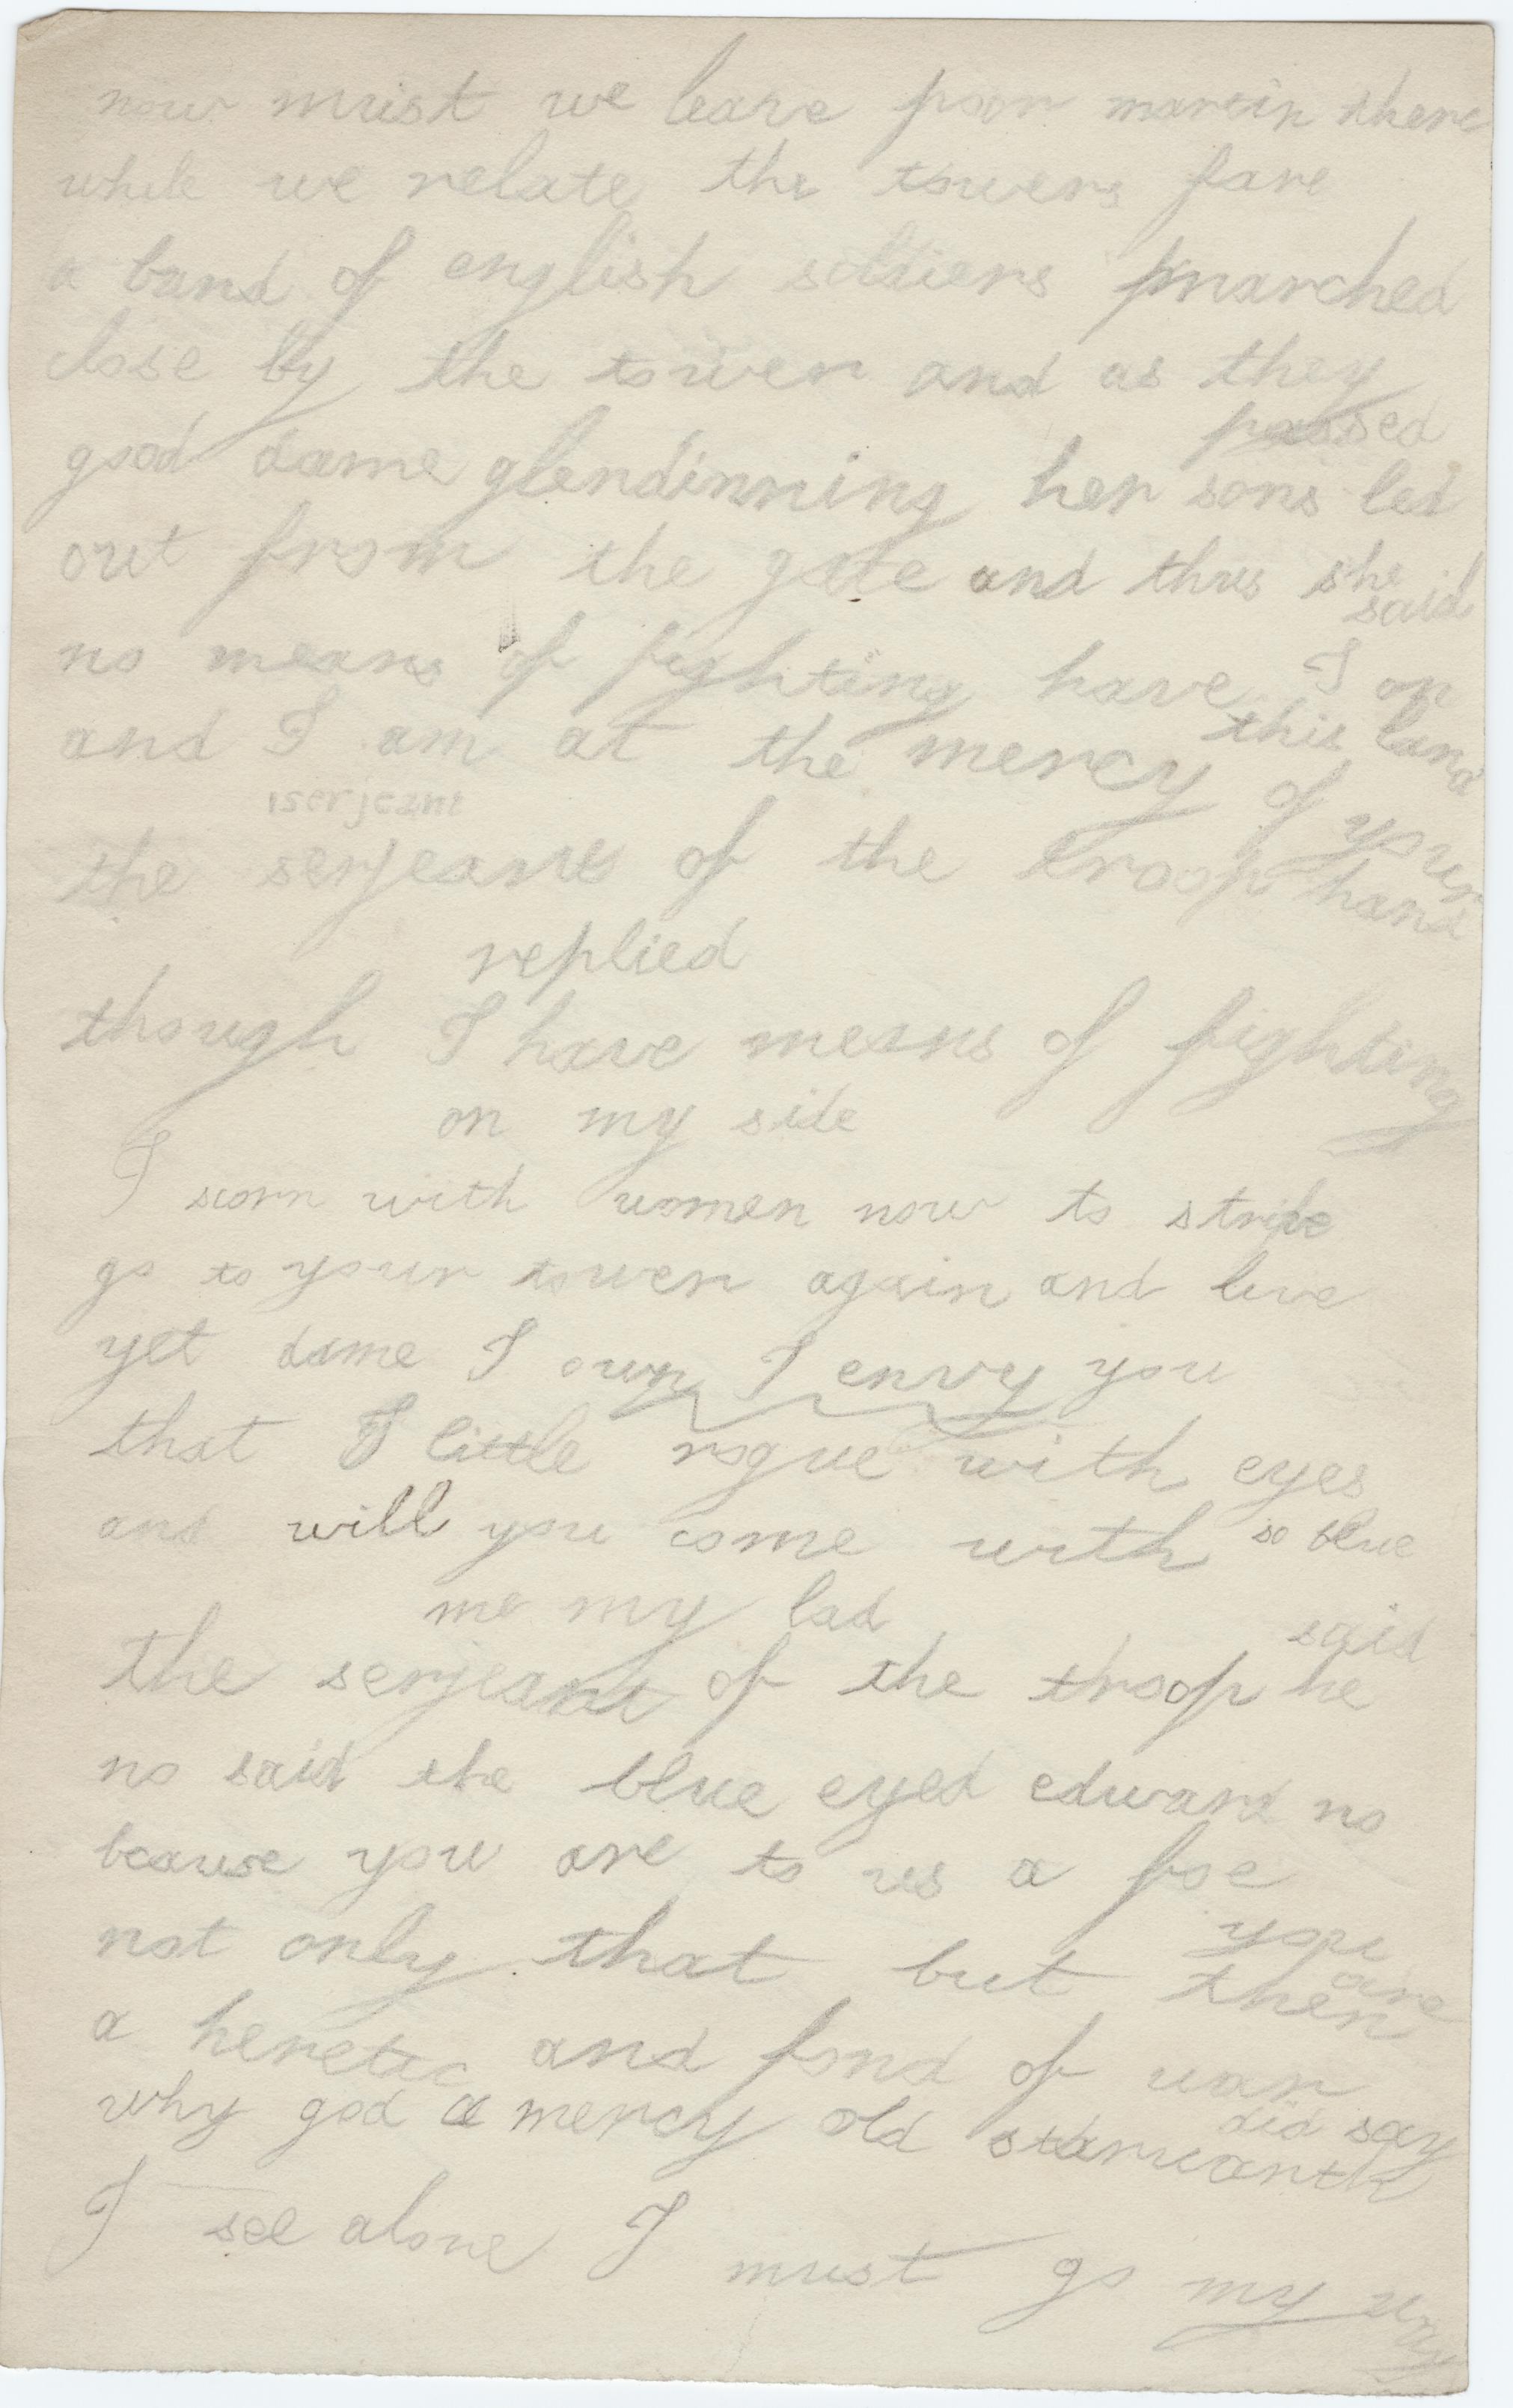 now must we leave poor martin there
while we relate the towers fare
a band of english soldiers marched
close by the tower and as they
passed
good dame glendinning her sons led
out from the gate and thus she
said
no means of fighting have I on
this land
and I am at the mercy of your
hand
serjeant
the serjeant of the troop
replied
though I have means of fighting
on my side
I scorn with women now to strive
go to your tower again and live
yet dame I own I envy you
that little rogue with eyes
so blue
and will you come with
me my lad
said
the serjeant of the troop he
no said the blue eyed edward no
because you are to us a foe
not only that but then
you are
a heretic and fond of war
why god a mercy old
did say
I see alone I must go my way